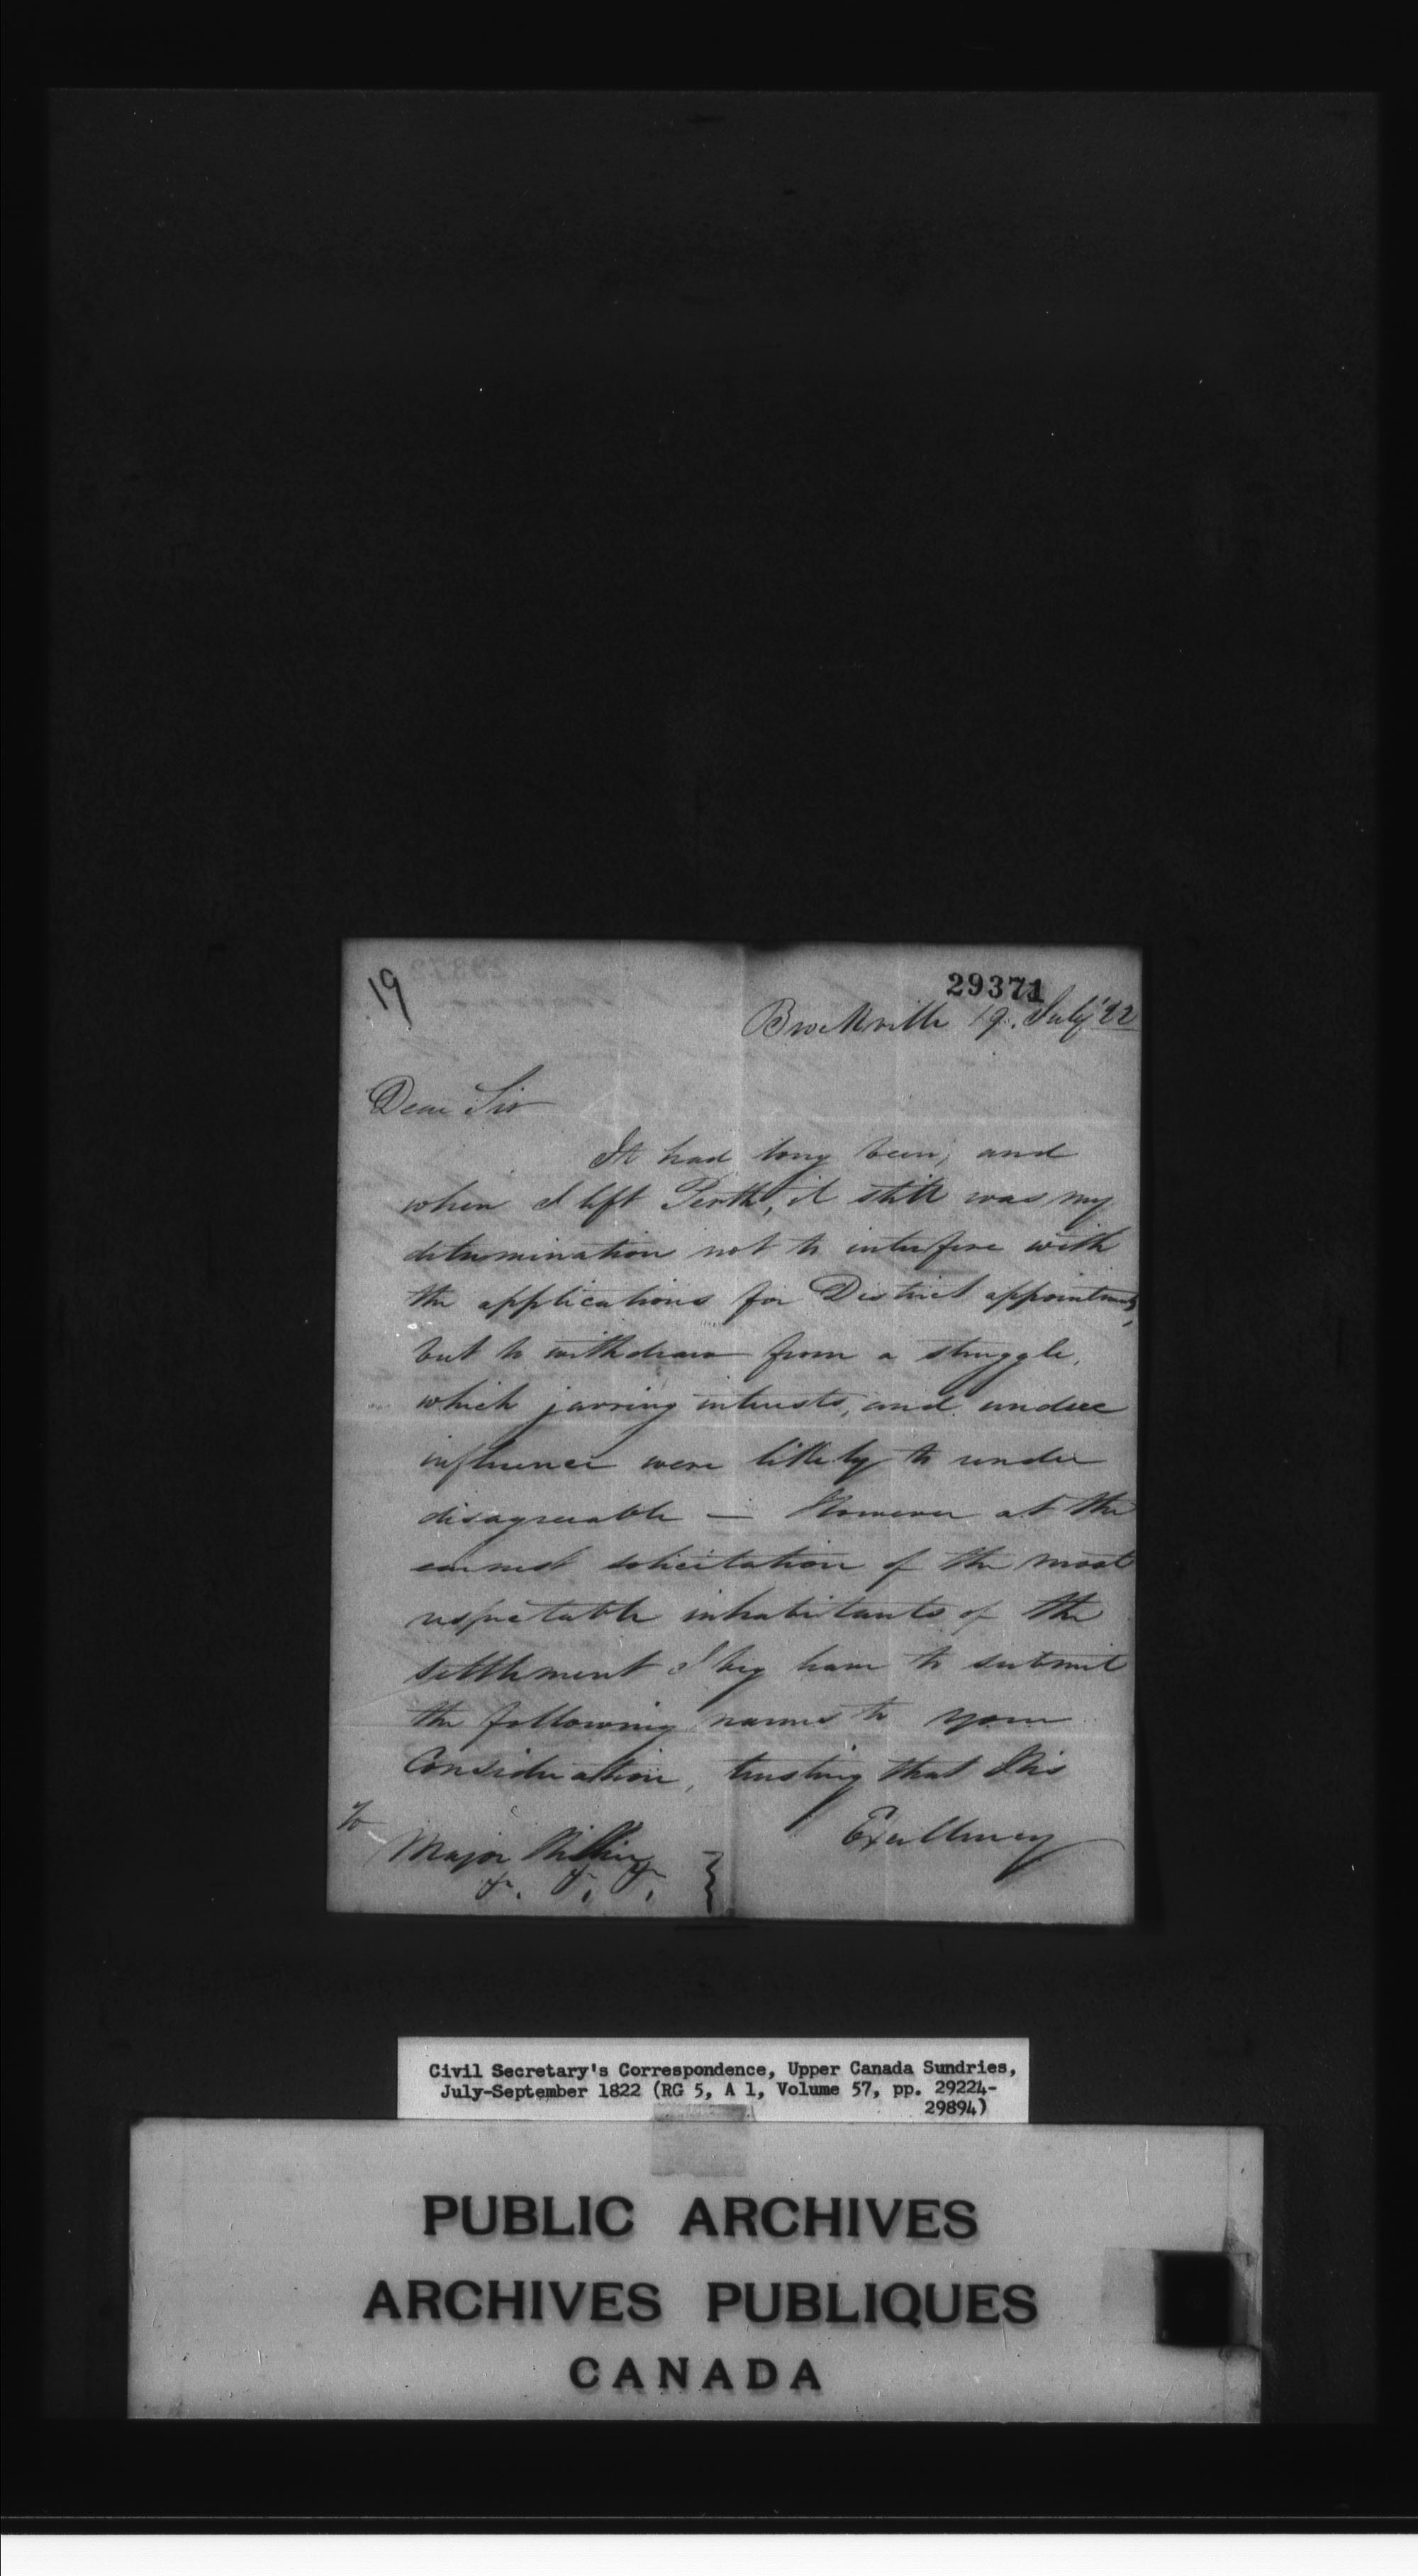 19
29371
Brockville 19. July '22
Dear Sir
It had long been, and
when I left Perth, it still was my
determination not to interfere with
the applications for District appointments,
but to withdraw from a struggle,
which jarring interests, and undue
influence were likely to render
disagreeable — However at the
earnest solicitation of the most
respectable inhabitants of the
settlement I beg leave to submit
the following names to your
Consideration, trusting that His
Excellency
To
Major Hillier
&c. &c. &c.
Civil Secretary's Correspondence, Upper Canada Sundries,
July-September 1822 (RG 5, A 1, Volume 57, pp. 29224-
29894)
PUBLIC ARCHIVES
ARCHIVES PUBLIQUES
CANADA